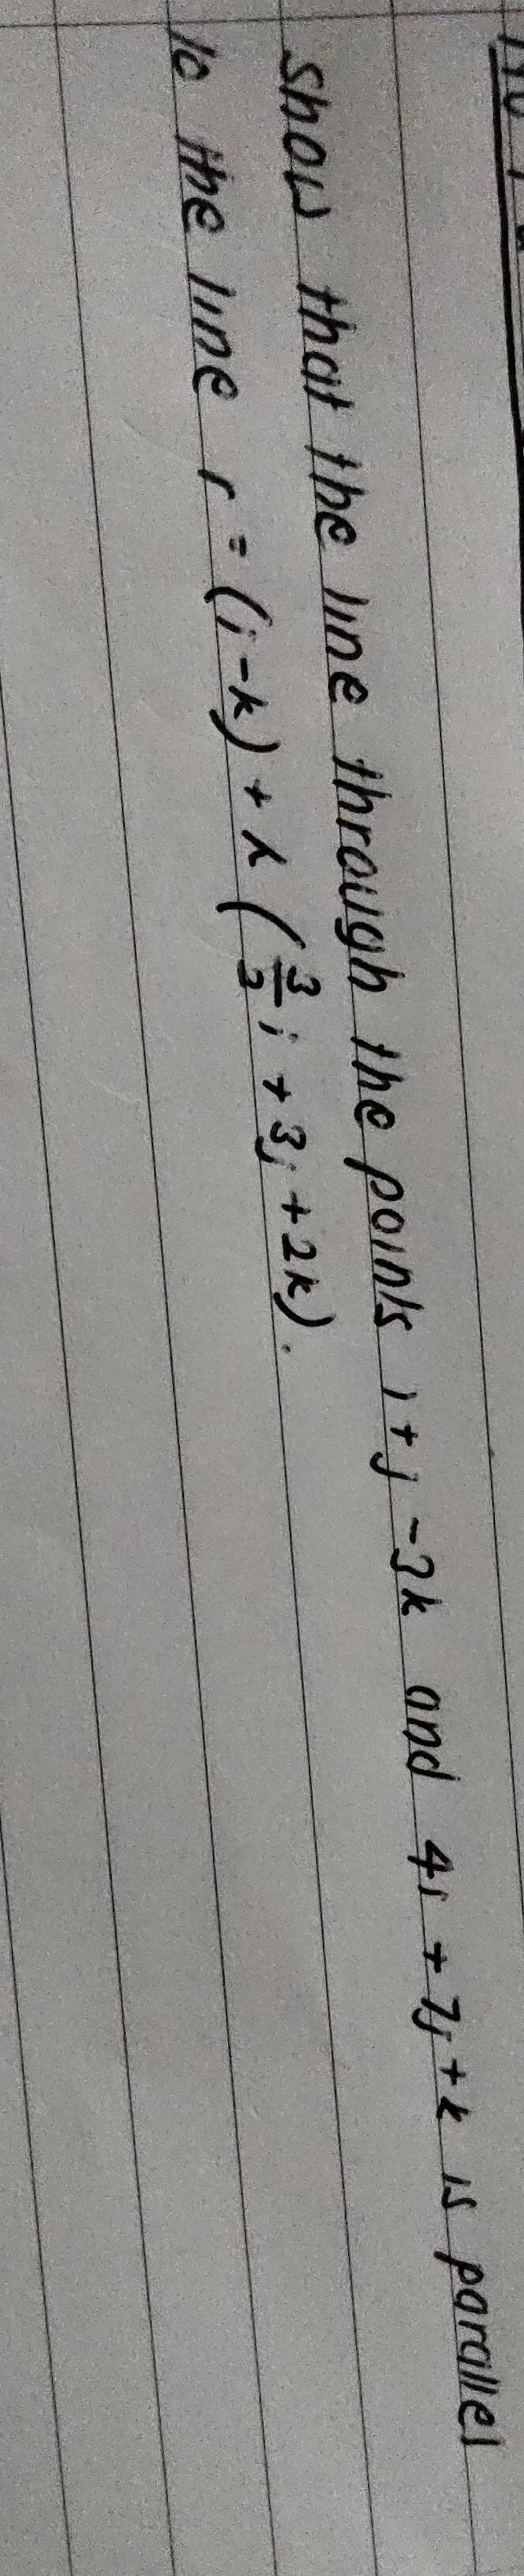 show that the line through the points i+j-3k and 4i+7j+k is parallel
to the line r = (i-k) + λ (3/2 i + 3j + 2k).